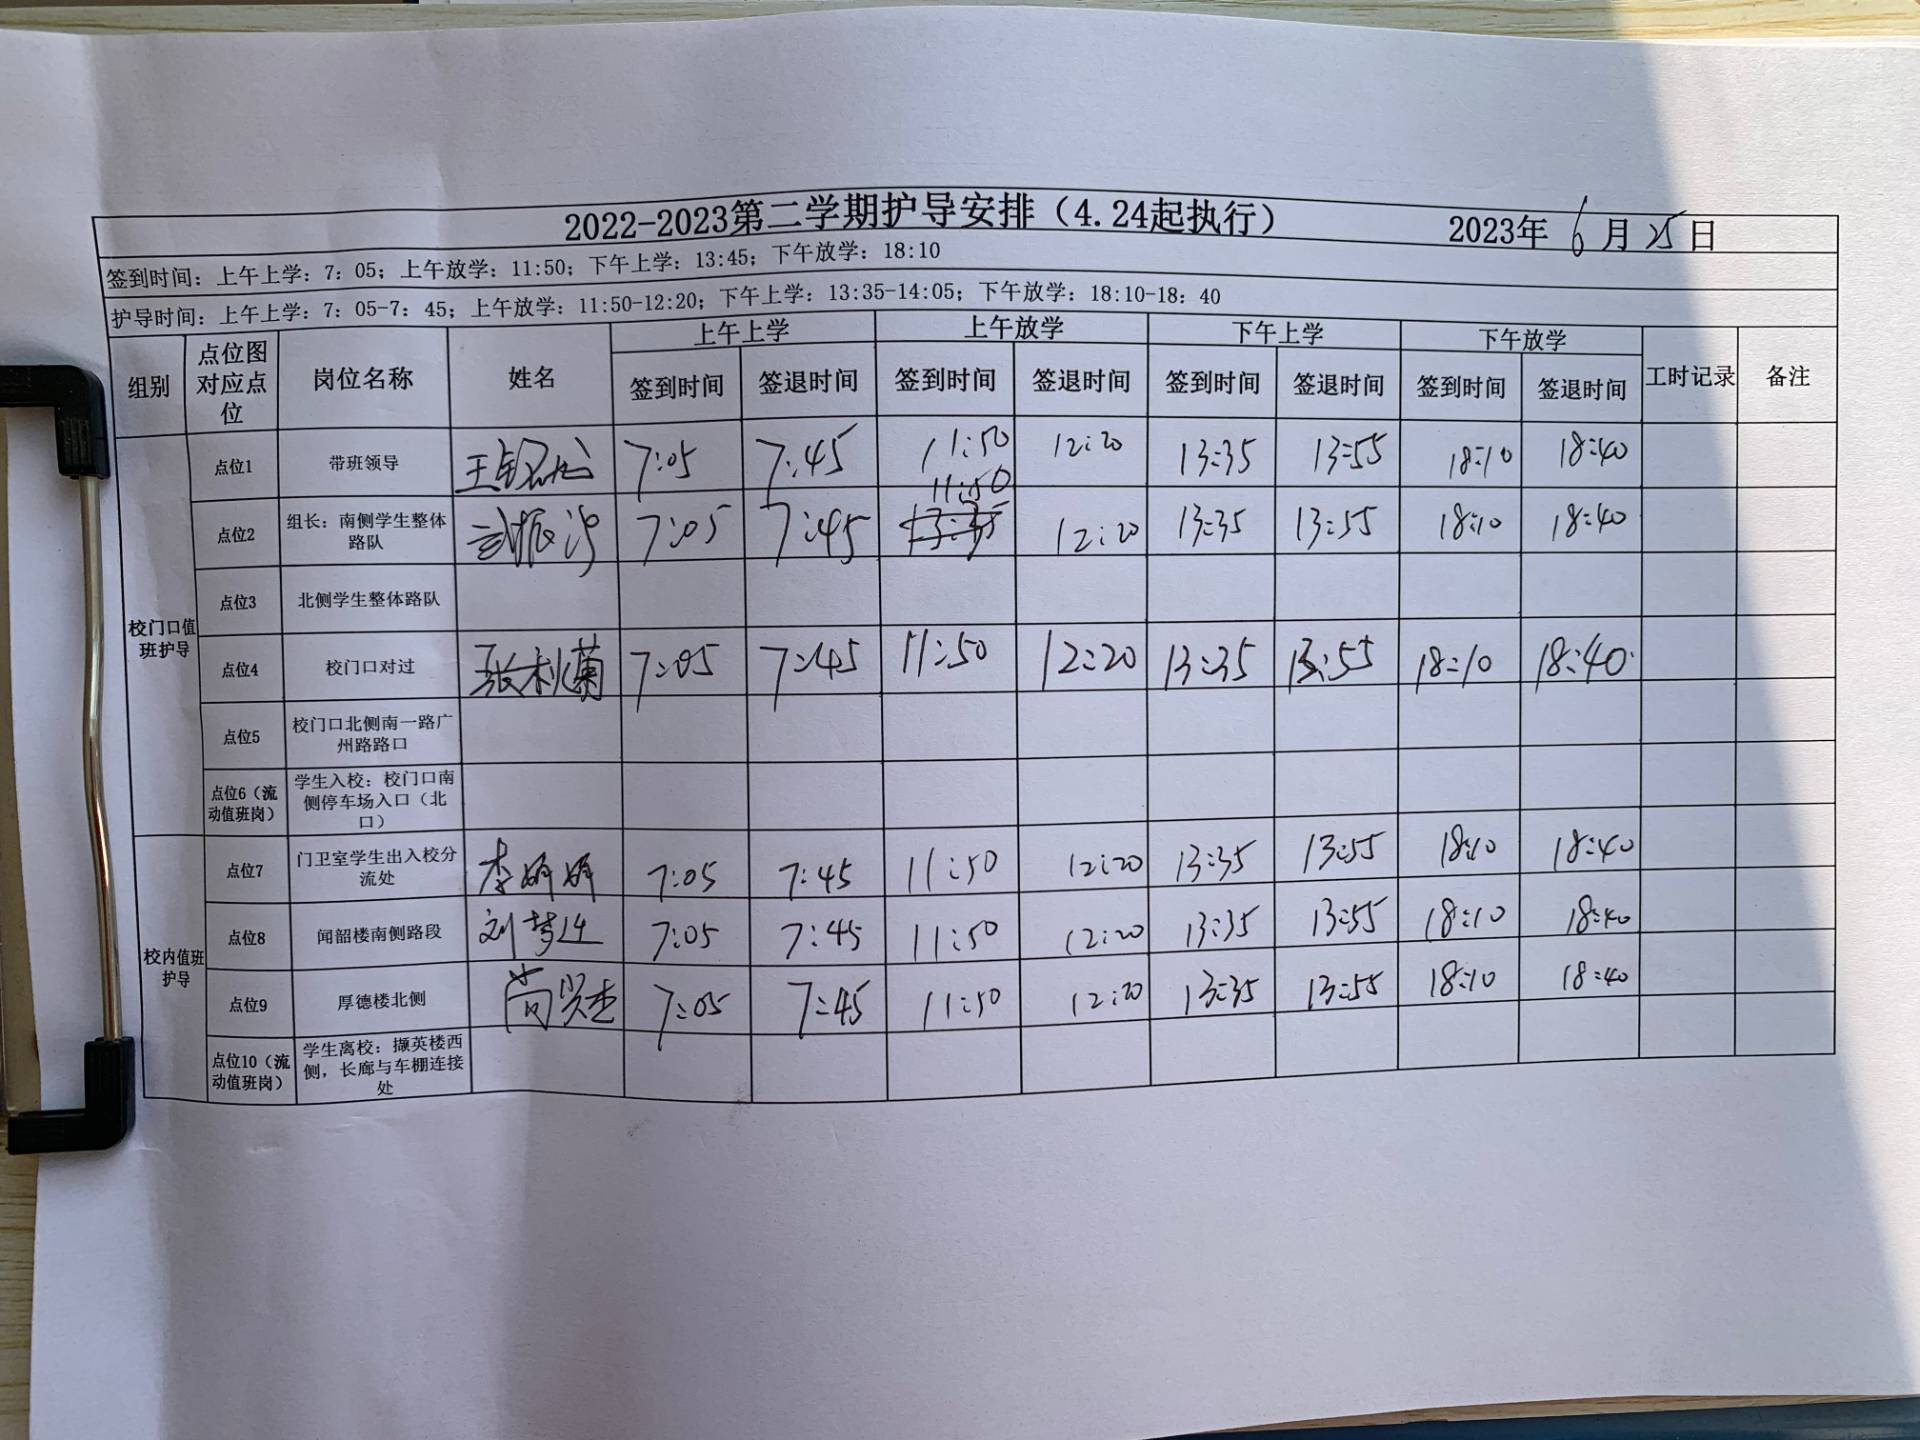 2022-2023第二学期护导安排（4.24起执行） 2023年 6 月 25 日
签到时间：上午上学：7：05；上午放学：11:50；下午上学：13:45；下午放学：18:10
护导时间：上午上学：7：05-7：45；上午放学：11:50-12:20；下午上学：13:35-14:05；下午放学：18:10-18：40
组别 点位图对应点位 岗位名称 姓名 上午上学 上午放学 下午上学 下午放学 工时记录 备注
签到时间 签退时间 签到时间 签退时间 签到时间 签退时间 签到时间 签退时间
校门口值班护导
点位1 带班领导 7:05 7:45 11:50 12:20 13:35 13:55 18:10 18:40
点位2 组长：南侧学生整体路队 武振 7:05 7:45 11:50 12:20 13:35 13:55 18:10 18:40
点位3 北侧学生整体路队
点位4 校门口对过 张利菊 7:05 7:45 11:50 12:20 13:35 13:55 18:10 18:40
点位5 校门口北侧南一路广州路路口
点位6（流动值班岗） 学生入校：校门口南侧停车场入口（北口）
校内值班护导
点位7 门卫室学生出入校分流处 李娟娟 7:05 7:45 11:50 12:20 13:35 13:55 18:10 18:40
点位8 闻韶楼南侧路段 刘梦迪 7:05 7:45 11:50 12:20 13:35 13:55 18:10 18:40
点位9 厚德楼北侧 7:05 7:45 11:50 12:20 13:35 13:55 18:10 18:40
点位10（流动值班岗） 学生离校：撷英楼西侧，长廊与车棚连接处